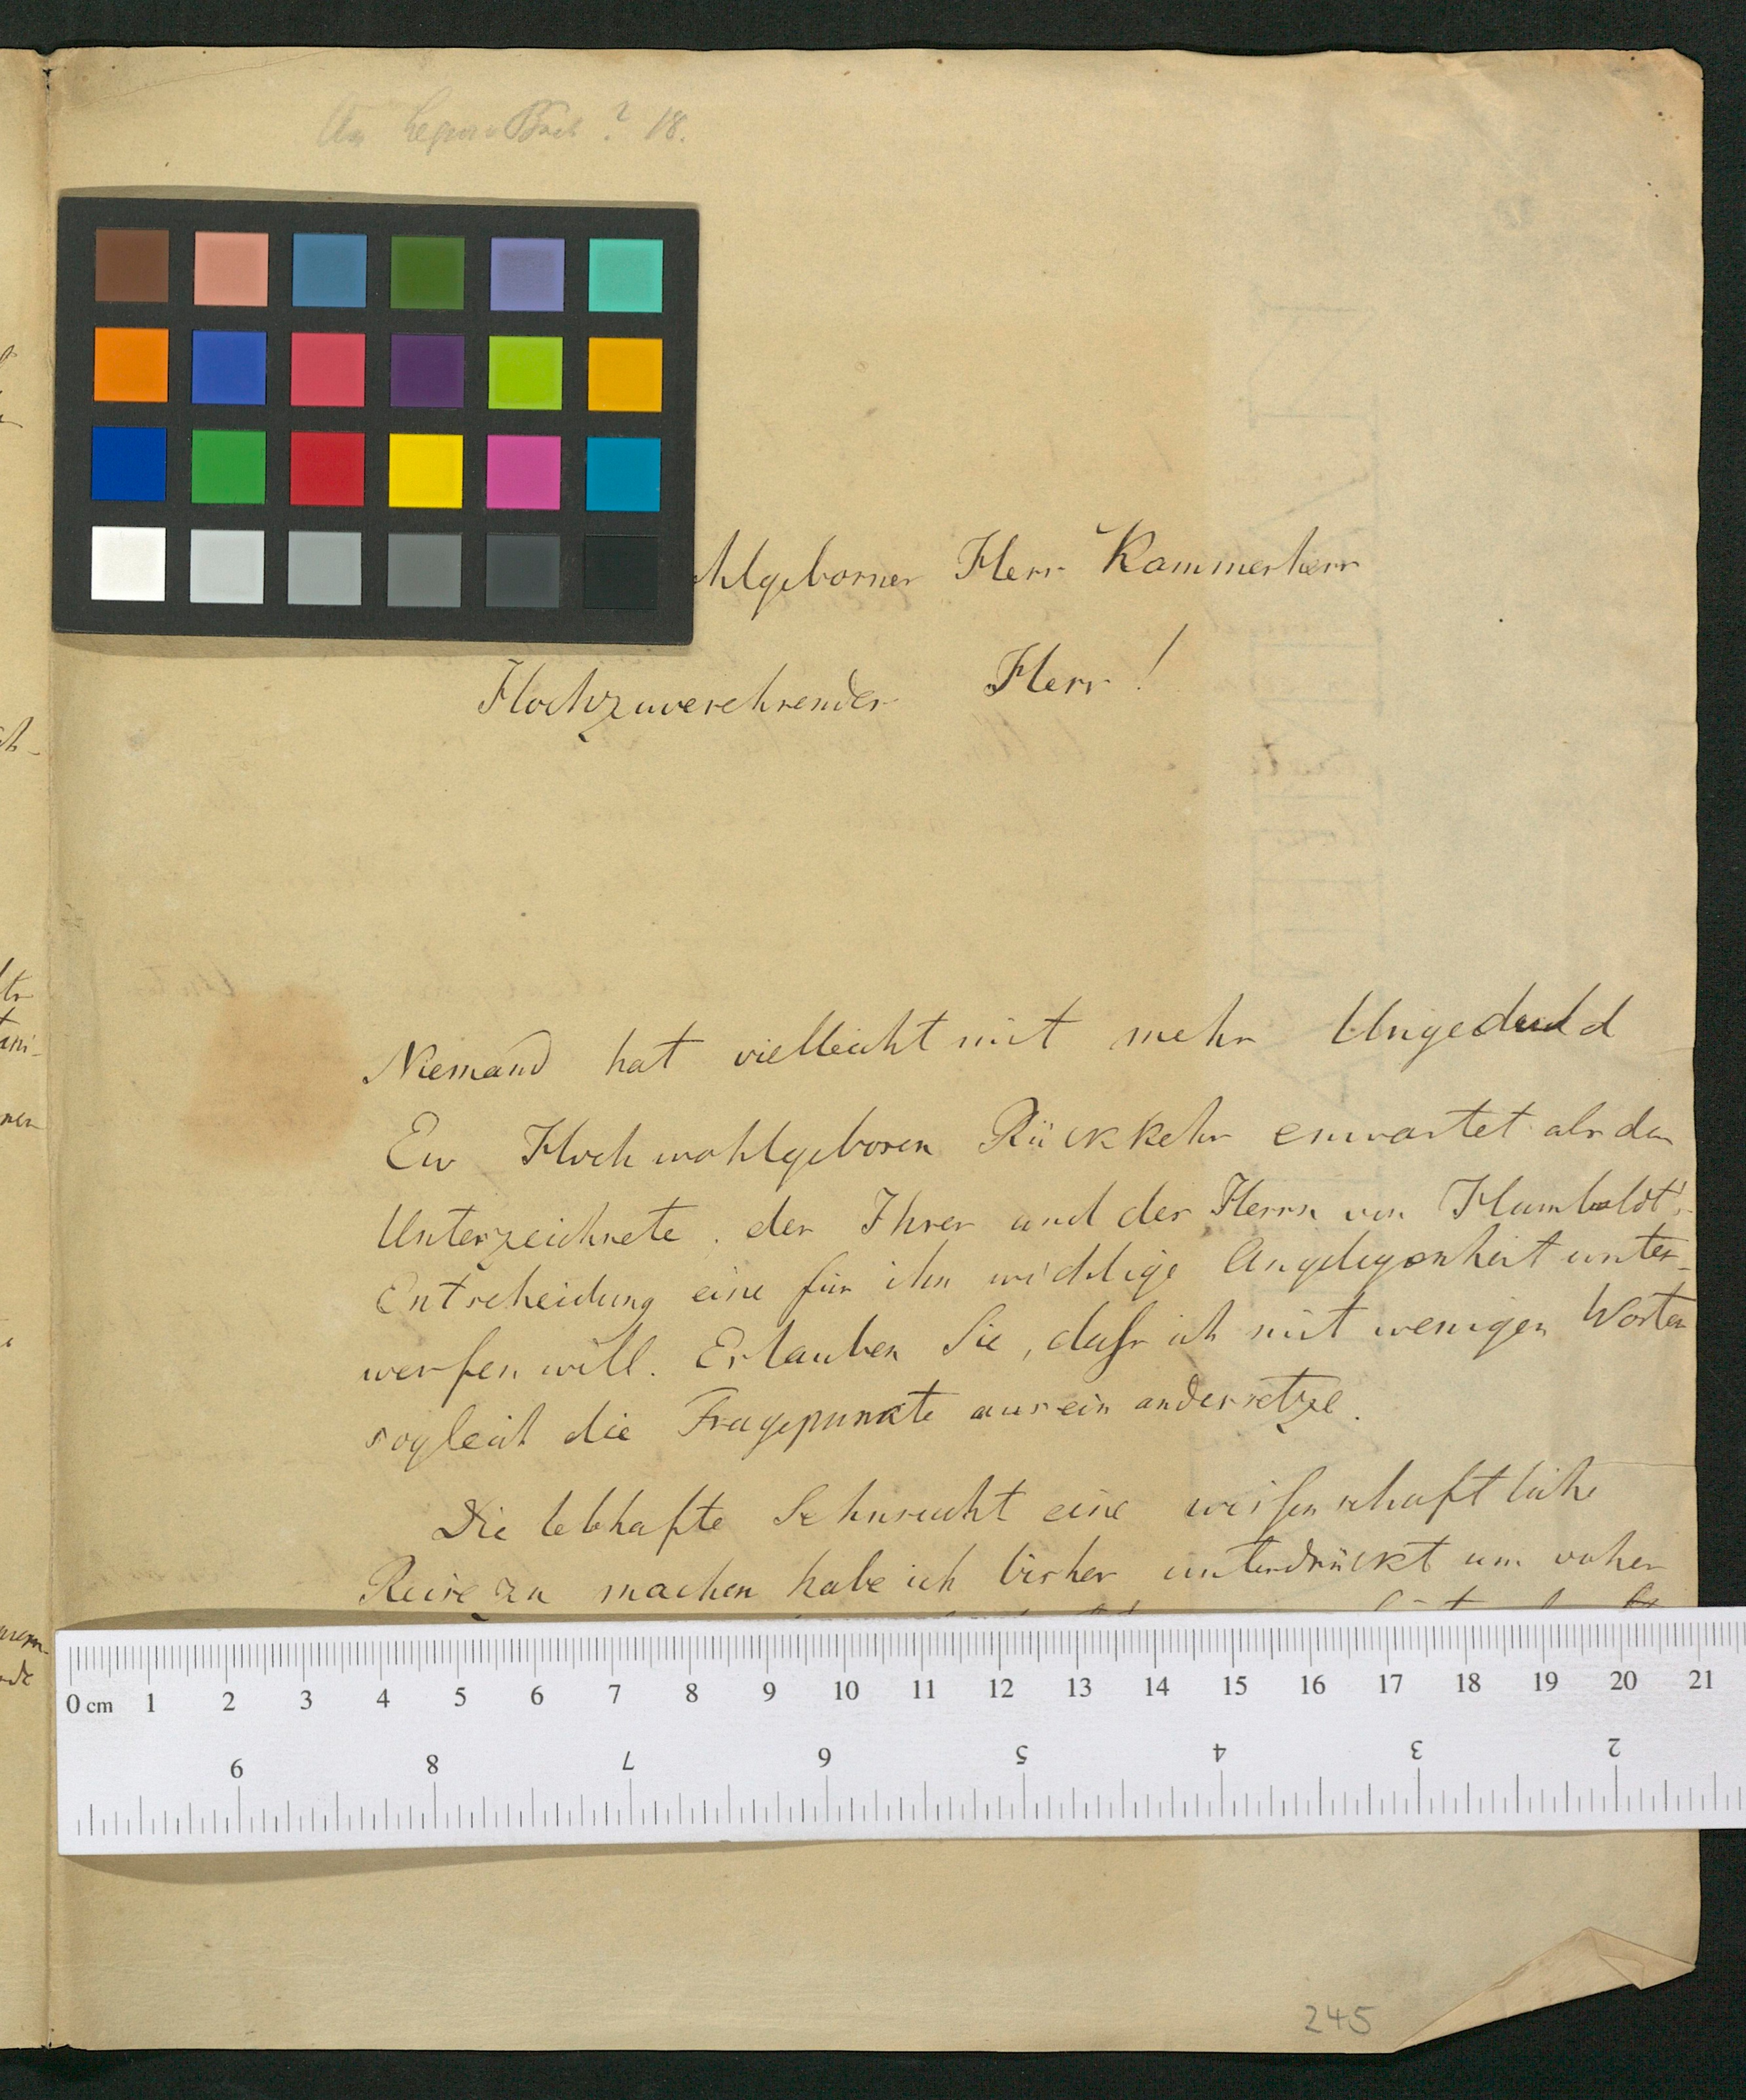 18.
hlgeborner Herr Kammerherr
Hochzuverehrender Herr!
Niemand hat vielleicht mit mehr Ungeduld
Ew Hochwohlgeboren Rückkehr erwartet als der
Unterzeichnete. der Ihrer und des Herrn von Humboldt's
Entscheidung eine für ihn wichtige Angelegenheit unter-
werfen will. Erlauben Sie, daſs ich mit wenigen Worten
sogleich die Fragepunkte auseinandersetze.
Die lebhafte Sehnsucht eine wiſsenschaftliche
Reise zu machen habe ich bisher unterdrückt um vorher
0 cm 1 2 3 4 5 6 7 8 9 10 11 12 13 14 15 16 17 18 19 20 21
9 8 7 6 5 4 3 2
245